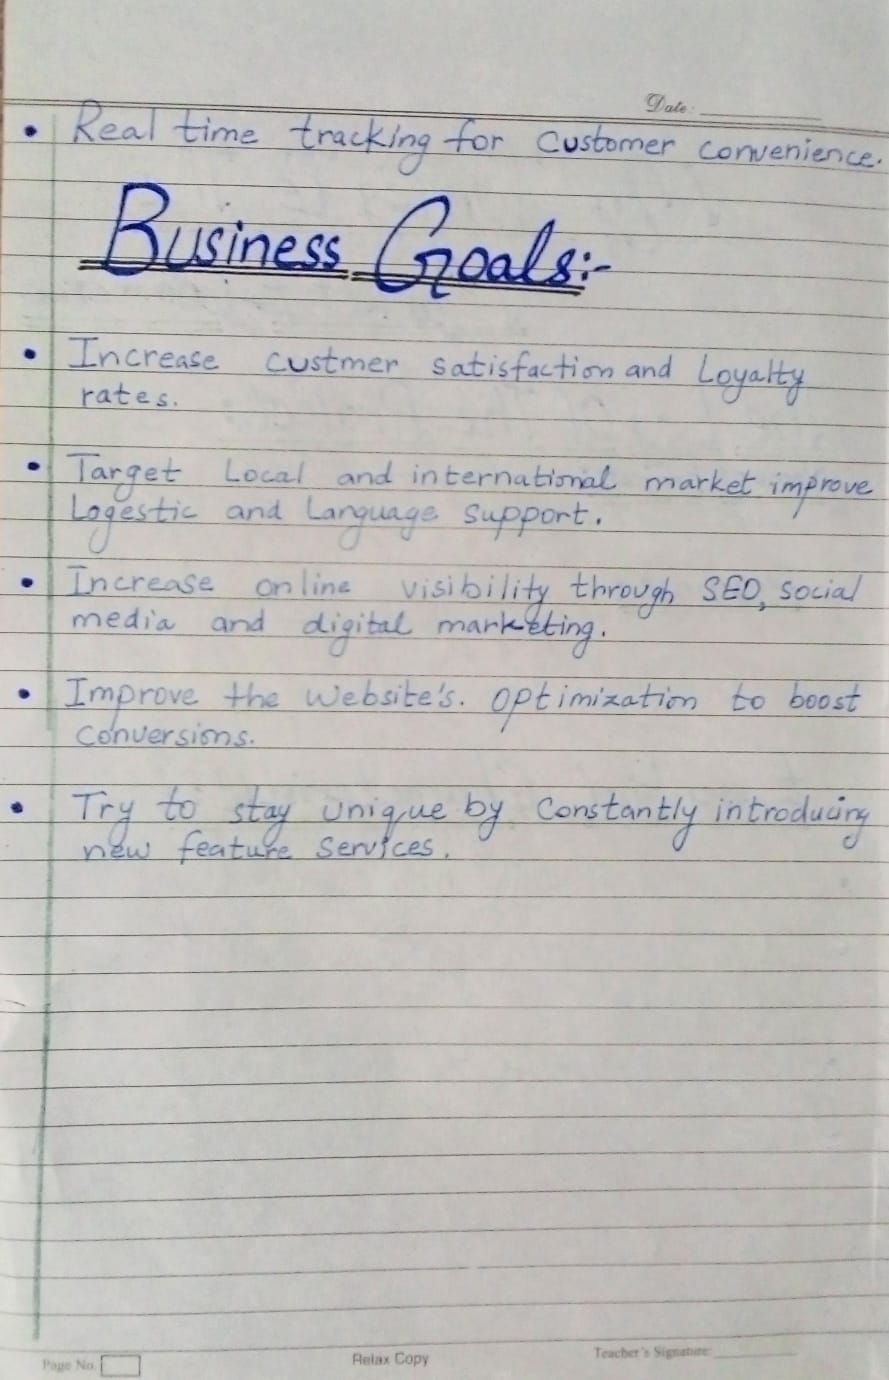 Date:
• Real time tracking for Customer convenience.
Business Goals:-
• Increase custmer satisfaction and Loyalty
rates.
• Target Local and international market improve
Logestic and Language Support.
• Increase online visibility through SEO, social
media and digital marketing.
• Improve the Website's. Optimization to boost
Conversions.
• Try to stay unique by Constantly introducing
new feature Services.
Page No.
Relax Copy
Teacher's Signature: